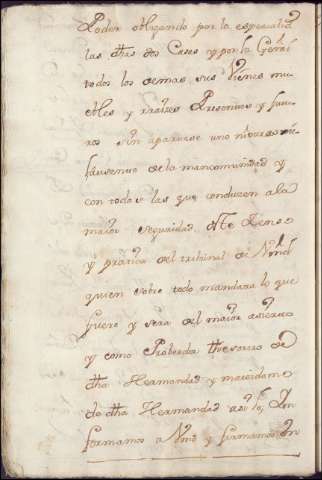 Poder obligando por la especialid
las dhas dos Casas y por la Genrl
todos los demas sus Vienes mu
ebles y raizes Presentes y futu
ros sin apartarse uno ni otro ni
de la mancomunidad y
con todas las que conducen a la
maior seguridad
y practica del tribunal de Vmd
quien sobre todo mandara lo que
fuere y sera del maior asierto
y como Probeda thesorero de
dha Hermandad y maiordomo
de dha Hermandad asi lo In
formamos a Vmd y firmamos En